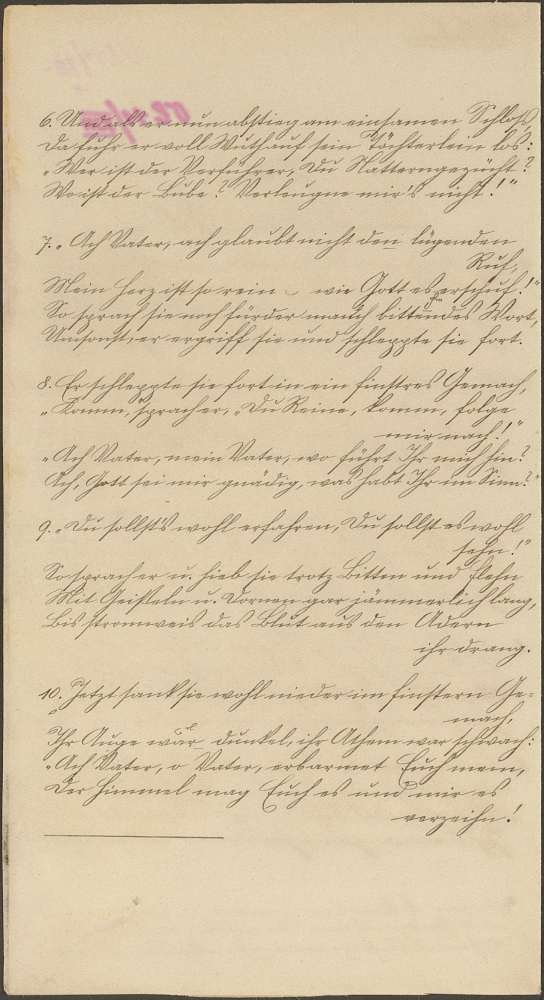 6. Und als er nun abstieg am einsamen Schloß,
Da fuhr er voll Wuth auf sein Töchterlein los:
„Wer ist der Verführer, Du Natterngezücht?
Wo ist der Bube? Verleugne mir's nicht!"
7. „Ach Vater, ach glaubt nicht den lügenden
Ruf,
Mein Herz ist so rein – wie Gott es erschuf!"
So sprach sie noch fürder manch bittendes Wort,
Umsonst, er ergriff sie und schleppte sie fort.
8. Er schleppte sie fort in ein finstres Gemach,
„Komm, sprach er, „Du Reine, komm, folge
mir nach!"
„Ach Vater, mein Vater, wo führt Ihr mich hin?
Ach, Gott sei mir gnädig, was habt Ihr im Sinn?"
9. „Du sollst's wohl erfahren, Du sollst es wohl
sehn!"
So sprach er u. hieb sie trotz Bitten und Flehn
Mit Geißeln u. Dornen gar jämmerlich lang,
Bis stromweis das Blut aus den Adern
ihr drang.
10. Jetzt sank sie wohl nieder im finstern Ge-
mach,
Ihr Auge war dunkel, ihr Athem war schwach:
„Ach Vater, o Vater, erbarmet Euch mein,
Der Himmel mag Euch es und mir es
verzeihn!